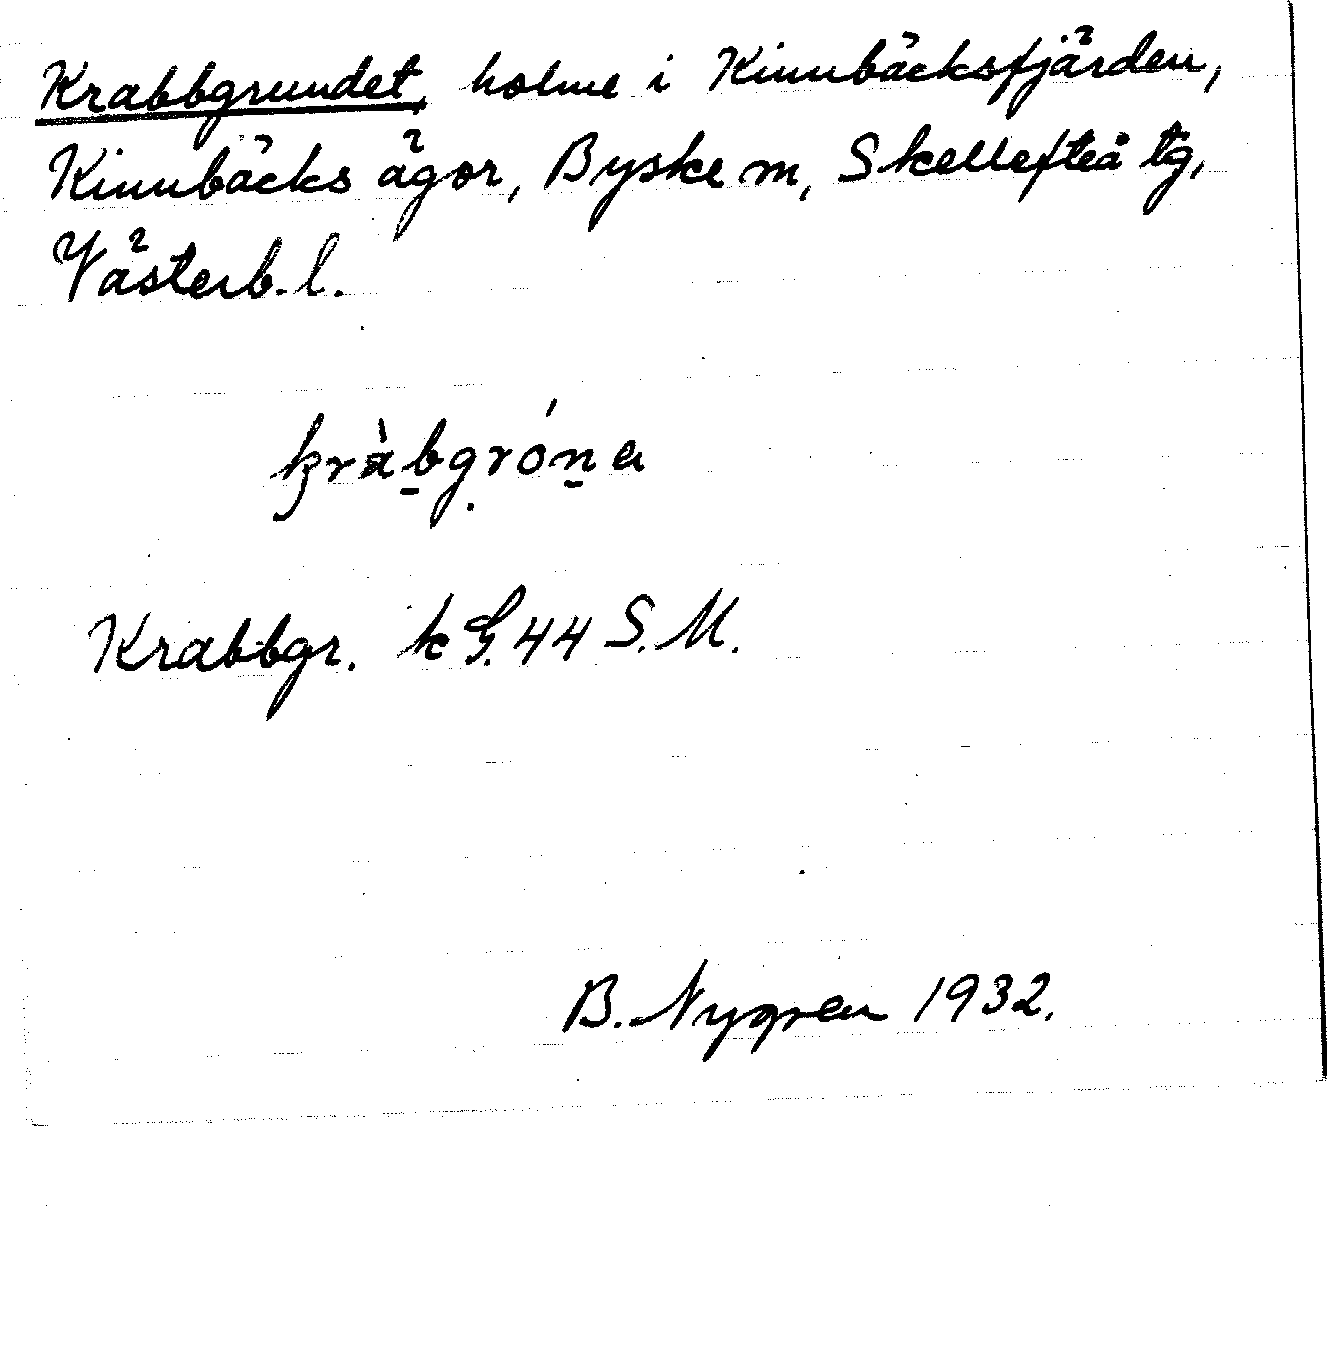 Krabbgrundet, holme i Kinnbäcksfjärden,
Kinnbäcks ägor, Byske m, Skellefteå tg,
Västerb. l.
kràbgróna
Krabbgr. k G. 44 S. M.
B. Nygren 1932.